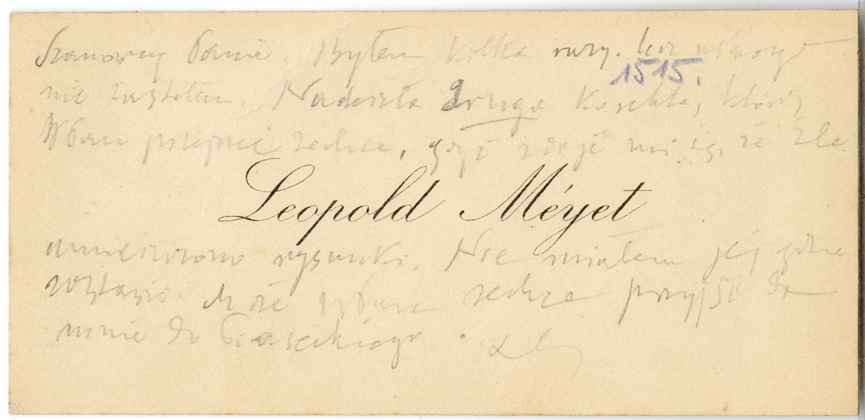 Szanowny Panie. Byłem kilka razy. lecz nikogo
1515.
nie zastałem. Nadeszła druga korekta, którą
WPan przejrzeć zechce, gdyż zdaje mi się, że źle
Leopold Méyet
umieszczono rysunki. Nie miałem jej gdzie
zostawić. Może WPan zechce przyjść do
mnie do Piaseckiego.